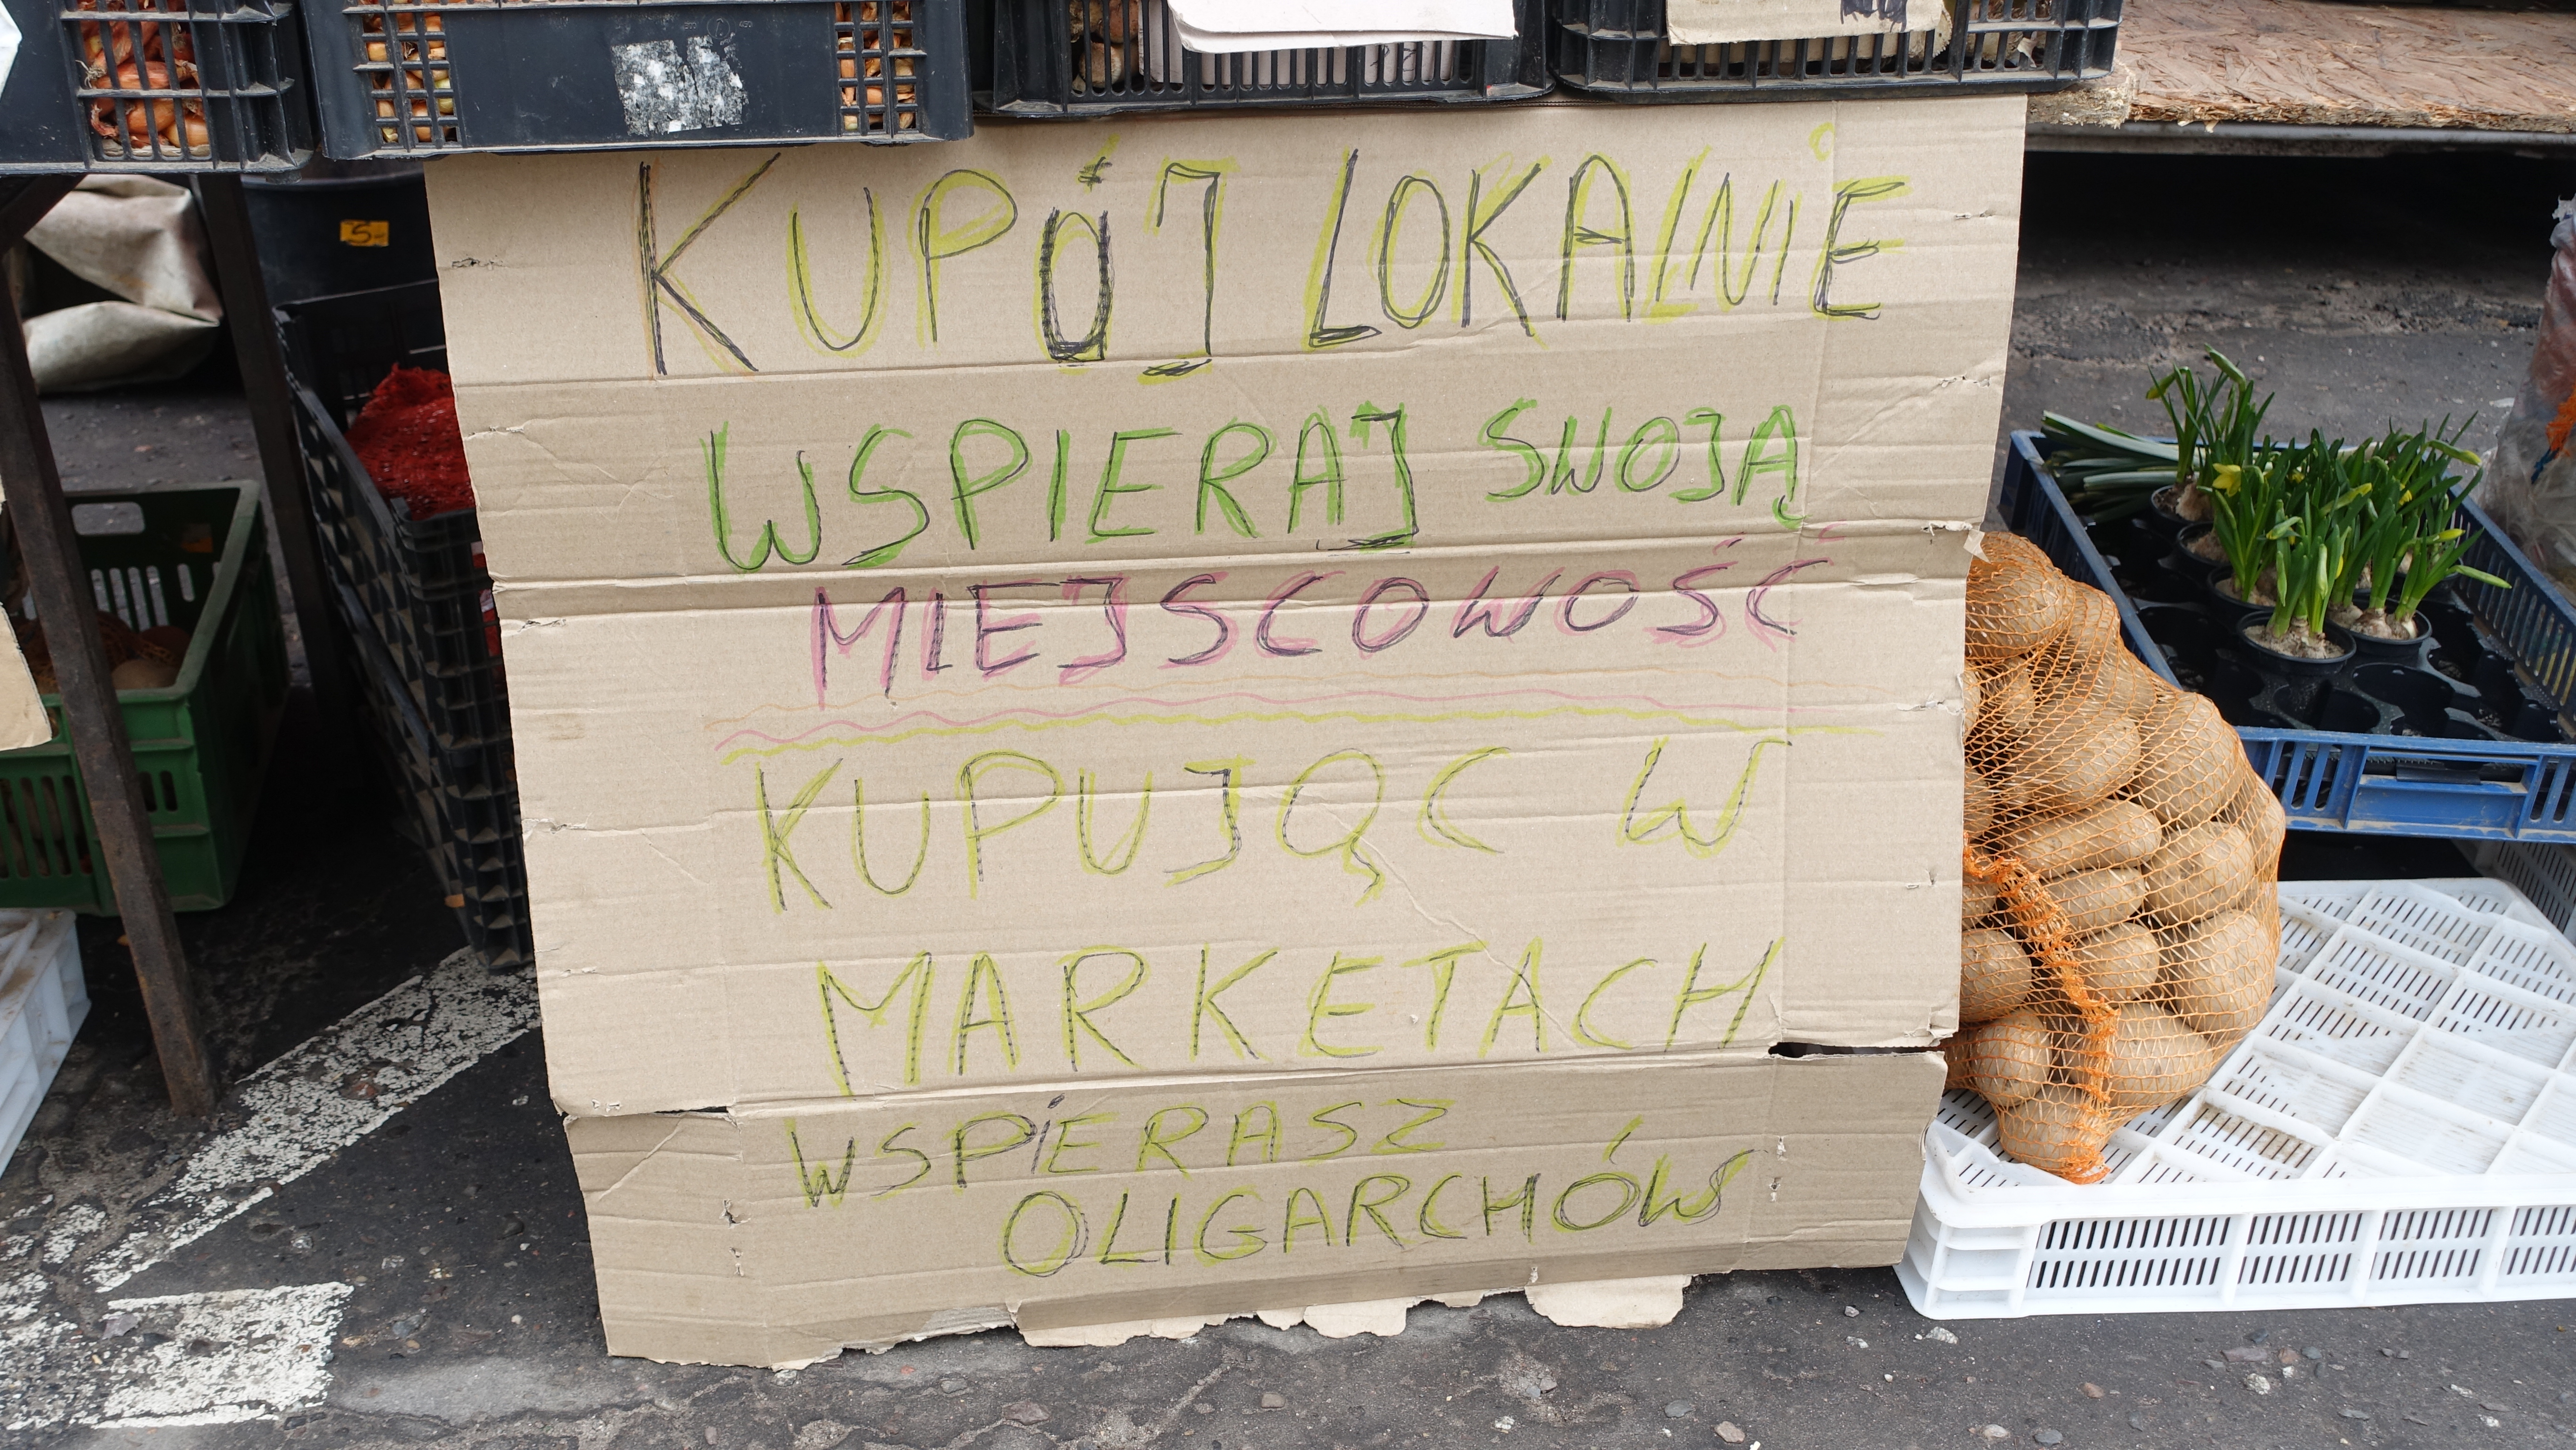 5-
KUPÓJ LOKALNIE
WSPIERAJ SWOJĄ
MIEJSCOWOŚĆ
KUPUJĄC W
MARKETACH
WSPIERASZ
OLIGARCHÓW